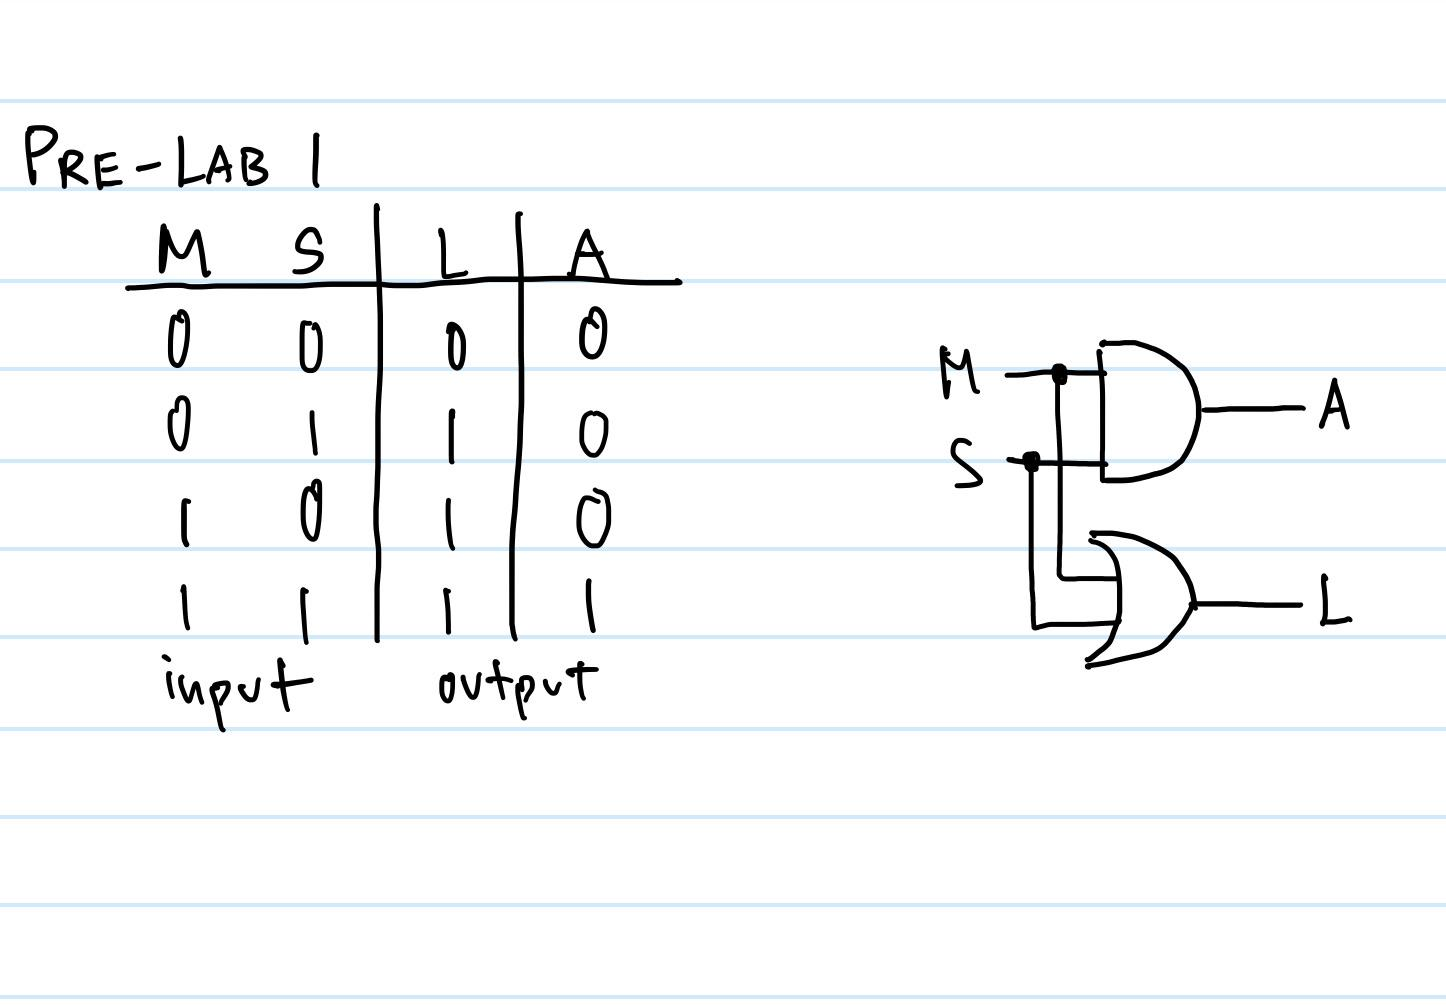 PRE-LAB 1
M S L A
0 0 0 0
0 1 1 0
1 0 1 0
1 1 1 1
input output
M
A
S
L